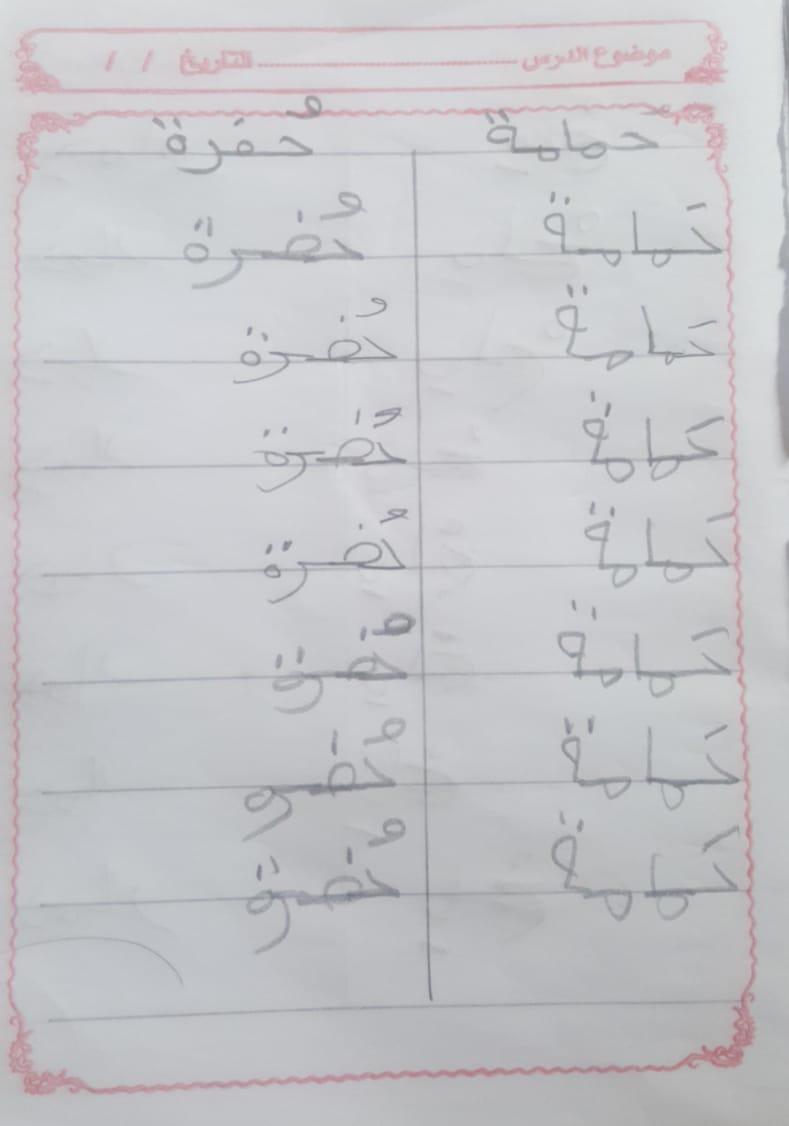 موضوع الدرس ........................ التاريخ / /
حمامة حُفرة
حَمامة حُفرة
حَمامة حُفرة
حَمامة حُفرة
حَمامة حُفرة
حَمامة حُفرة
حَمامة حُفرة
حَمامة حُفرة